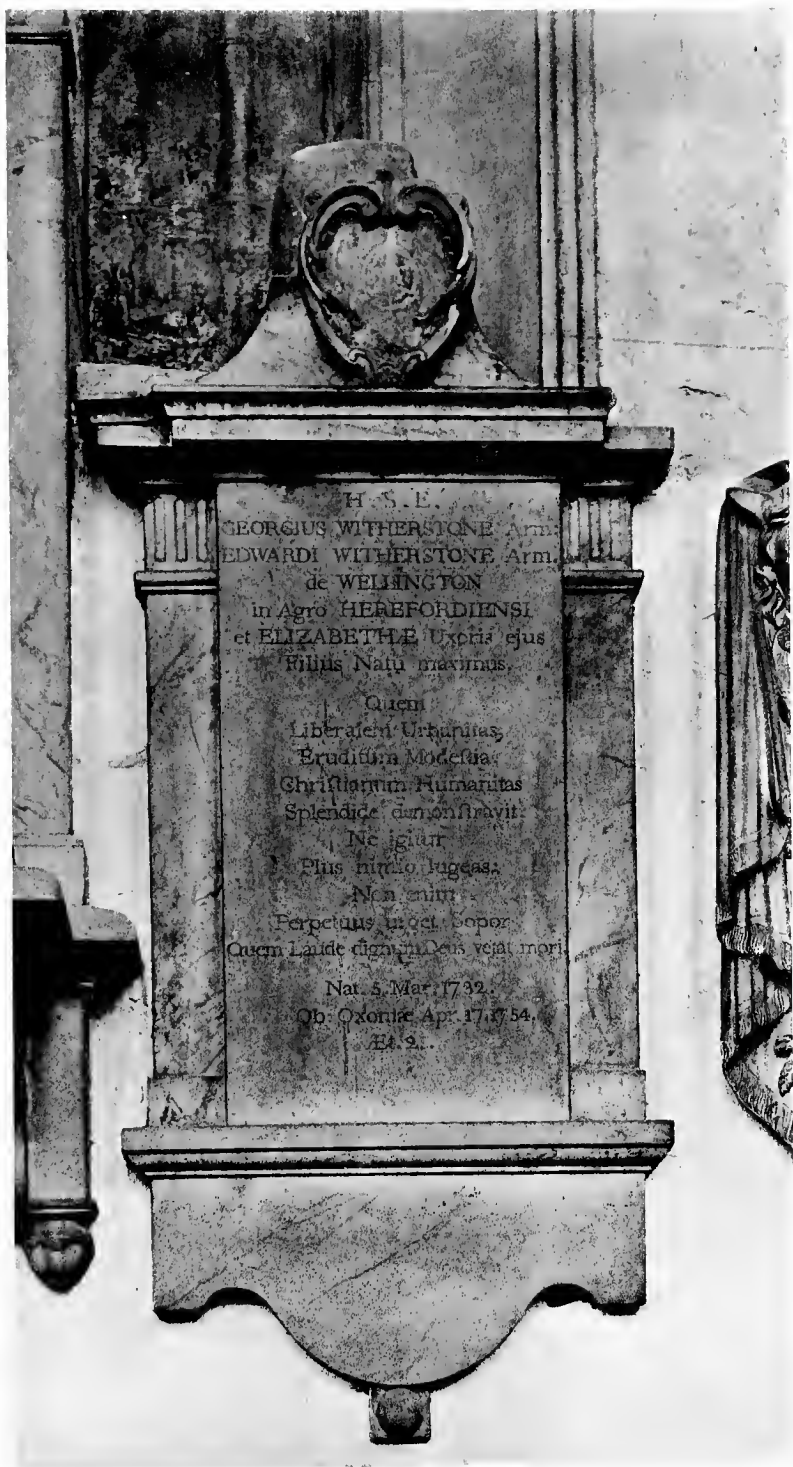 H. S. E.
GEORGIUS WITHERSTONE Arm:
EDWARDI WITHERSTONE Arm.
de WELLINGTON
in Agro HEREFORDIENSI
et ELIZABETHÆ Uxoris ejus
Filius Natu maximus.
Quem
Liberalem Urbanitas,
Eruditum Modeſtia,
Chriſtianum Humanitas
Splendide demonſtravit.
Ne igitur
Plus nimio lugeas;
Non enim
Perpetuus urget Sopor
Quem Laude dignum Deus vetat mori.
Nat. 5. Mar. 1732.
Ob. Oxoniæ Apr. 17. 1754.
Æt.